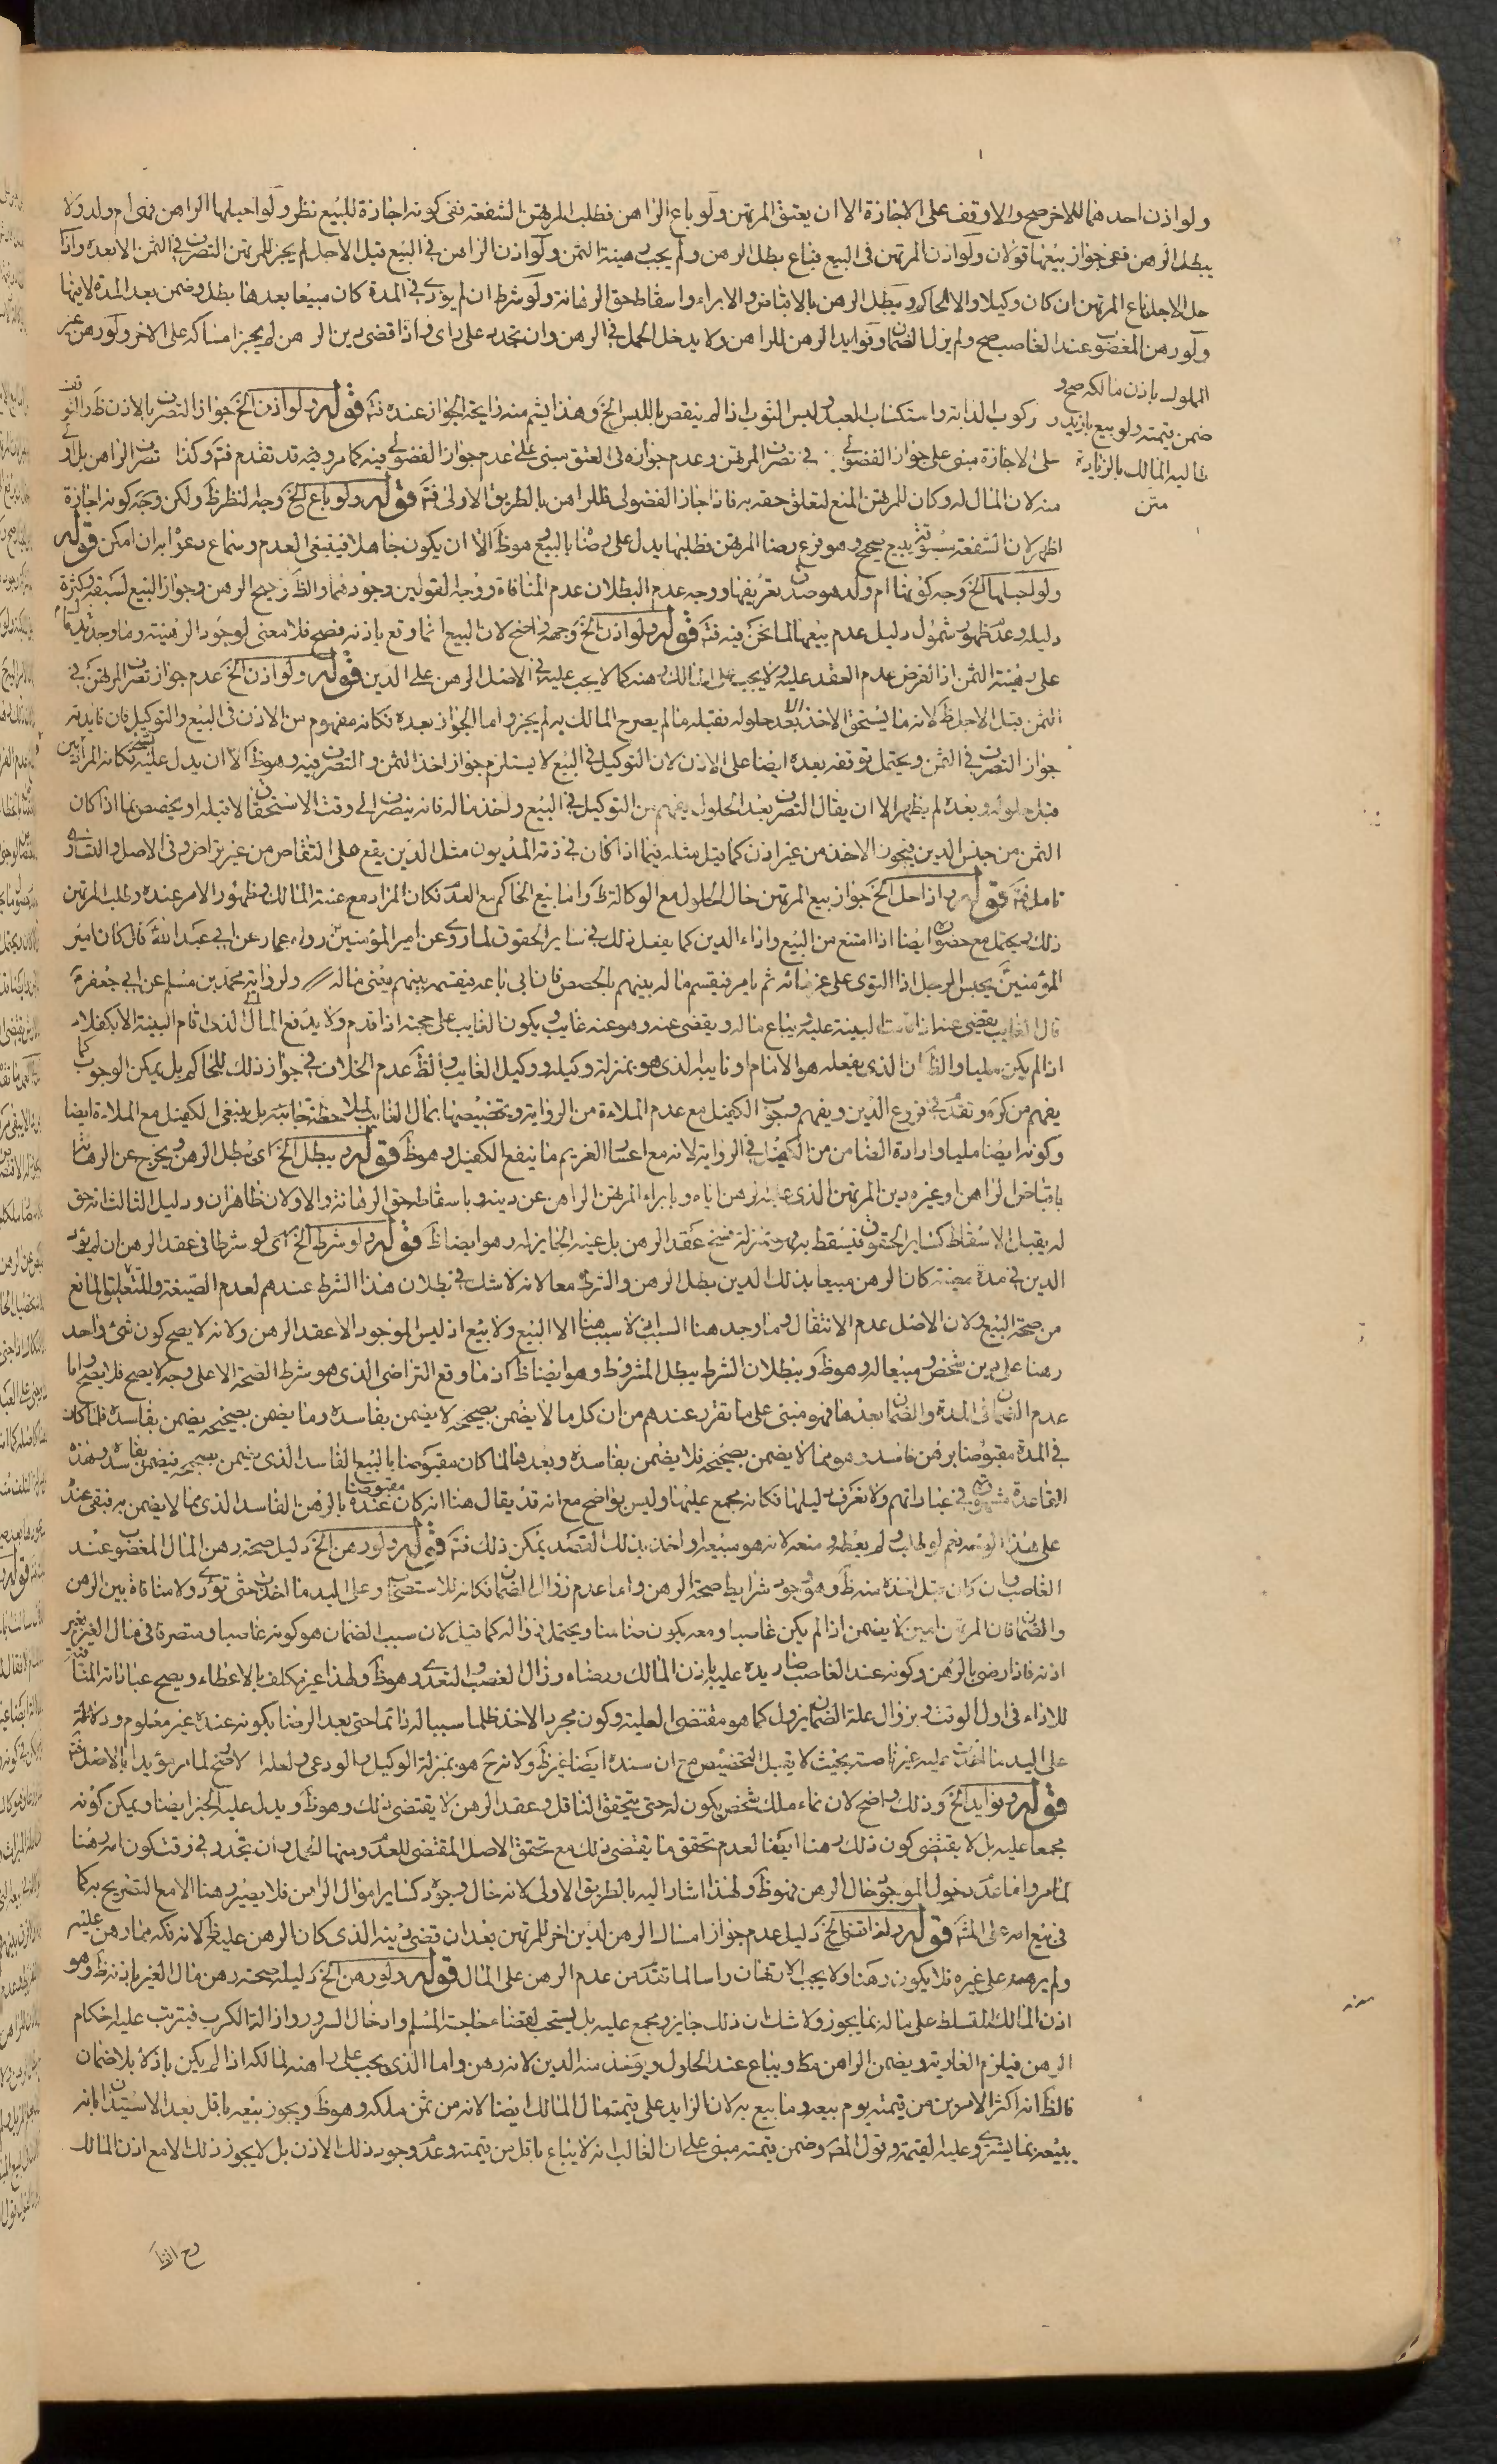 ولو اذن احدهما للاخر صح والا وقف على الاجازة الا ان يعتق المرتهن ولو باع الراهن فطلب المرتهن الشفعة ففى كونه اجازة للبيع نظر ولو احبلها الراهن فهى ام ولد ولا
يبطل الرهن فى جواز بيعها قولان ولو اذن المرتهن فى البيع فباع بطل الرهن ولم يجب رهينة الثمن ولو اذن الراهن فى البيع قبل الاجل لم يجز للمرتهن التصرف فى الثمن الا بعده واذا
حل الاجل باع المرتهن ان كان وكيلا والا الحاكم ويبطل الرهن بالاقباض والابراء واسقاط حق الرهانة ولو شرط ان لم يؤد فى المدة كان مبيعا بعدها بطل وضمن بعد المدة لا فيها
ولو رهن المغصوب عند الغاصب صح ولم يزل الضمان وفوايد الرهن للراهن ولا يدخل الحمل فى الرهن وان تجدد على راى واذا قضى دين الرهن لم يجز امساكه على الاخر ولو رهن غير
المملوك باذن مالكه صح و
ضمن قيمته ولو بيع بازيد
طالبه المالك بالزيادة
متن
ركوب الدابة واستكساب العبد ولبس الثوب اذا لم ينقص باللبس الخ وهذا يشم منه رايحة الجواز عنده فت قوله ولو اذن الخ جواز التصرف بالاذن ظ والتوقف
على الاجازة مبنى على جواز الفضولى فى تصرف المرتهن وعدم جوازه فى العتق مبنى على عدم جواز الفضولى فيه كما مر وفيه قد تقدم فت وكذا تصرف الراهن بل اولى
منه لان المال له وكان للمرتهن المنع لتعلق حقه به فاذا جاز الفضولى فللراهن بالطريق الاولى فت قوله ولو باع الخ وجه النظر ظ ولكن وجه كونه اجازة
اظهر لان الشفعة بيع صحيح وهو فرع رضا المرتهن فطلبها يدل على رضا بالبيع وهو ظ الا ان يكون جاهلا فينبغى العدم وسماع دعواه ان امكن قوله
ولو احبلها الخ وجه كونها ام ولد هو صدق تعريفها ووجه عدم البطلان عدم المنافاة ووجه القولين وجودهما والظ ترجيح الرهن وجواز البيع لسبقه وكثرة
دليله وعدم ظهور شمول دليل عدم بيعها لما نحن فيه فت قوله ولو اذن الخ وجهه واضح لان البيع انما وقع باذنه فصح فلا معنى لوجود الرهنية وما وجد
على رهنية الثمن اذ الفرض عدم العقد عليه ولا يجب على المالك رهنه كما لا يجب عليه فى الاصل الرهن على الدين قوله ولو اذن الخ عدم جواز تصرف المرتهن فى
الثمن قبل الاجل ظ لانه ما يستحق الاخذ الا بعد حلوله فقبله ما لم يصرح المالك به لم يجز واما الجواز بعده فكانه مفهوم من الاذن فى البيع والتوكيل فان فايدته
جواز التصرف فى الثمن ويحتمل توقفه بعده ايضا على الاذن لان التوكيل فى البيع لا يستلزم جواز اخذ الثمن والتصرف فيه وهو ظ الا ان يدل عليه
قبل حلوله وبعده لم يظهر الا ان يقال التصرف بعد الحلول يفهم من التوكيل فى البيع واخذ ماله فانه ينصرف الى وقت الاستحقاق لا قبله او يخصص بما اذا كان
الثمن من جنس الدين فيجوز الاخذ من غير اذن كما قيل مثله فيما اذا كان فى ذمة المديون مثل الدين يقع على التقاص من غير تراض وفى الاصل والتساوى
تامل فت قوله واذا حل الخ جواز بيع المرتهن حال الحلول مع الوكالة ظ واما بيع الحاكم مع العدم فكان المراد مع غيبة المالك وظهور الامر عنده وطلب المرتهن
ذلك ويحتمل مع حضوره ايضا اذا امتنع من البيع واداء الدين كما يفعل ذلك فى ساير الحقوق لما روى عن امير المؤمنين رواه عمار عن ابى عبد الله قال كان امير
المؤمنين يحبس الرجل اذا التوى على غرمائه ثم يامر فيقسم ماله بينهم بالحصص فان ابى باعه فيقسمه بينهم يعنى ماله ولرواية محمد بن مسلم عن ابى جعفر
قال الغايب يقضى عنه اذا قامت البينة عليه ويباع ماله ويقضى عنه وهو عنه غايب ويكون الغايب على حجته اذا قدم ولا يدفع المال الى الذى اقام البينة الا بكفلاء
اذا لم يكن مليا والظ ان الذى يفعله هو الامام او نايبه الذى هو بمنزلة وكيله ووكيل الغايب والظ عدم الخلاف فى جواز ذلك للحاكم بل يمكن الوجوب كما
يفهم من كره وتقدم فى فروع الدين ويفهم وجوب الكفيل مع عدم الملاءة من الرواية وتخصيصها بمال الغايب لملاحظة جانبه بل ينبغى الكفيل مع الملاءة ايضا
وكونه ايضا مليا وارادة الضامن من الكفيل فى الرواية لانه مع اعسار الغريم ما ينفع الكفيل وهو ظ قوله ويبطل الخ اى يبطل الرهن ويخرج عن الرهانة
باقباض الراهن او غيره دين المرتهن الذى عليه الرهن اياه وبابراء المرتهن الراهن عن دينه وباسقاط حق الرهانة والاولان ظاهران ودليل الثالث انه حق
له يقبل الاسقاط كساير الحقوق فيسقط به وهو بمنزلة فسخ عقد الرهن بل عينه الجايز له وهو ايضا ظ قوله ولو شرط الخ اى لو شرطا فى عقد الرهن ان لم يؤد
الدين فى مدة معينة كان الرهن مبيعا بذلك الدين بطل الرهن والشرط معا لانه لا شك فى بطلان هذا الشرط عندهم لعدم الصيغة وللتعليق المانع
من صحة البيع ولان الاصل عدم الانتقال وما وجد هنا السبب اذ لا سبب هنا الا البيع ولا بيع اذ ليس الموجود الا عقد الرهن ولانه لا يصح كون شئ واحد
رهنا على دين شخص ومبيعا له وهو ظ وببطلان الشرط يبطل المشروط وهو ايضا ظ اذ ما وقع التراضى الذى هو شرط الصحة الا على وجه لا يصح فلا يصح واما
عدم الضمان فى المدة والضمان بعدها فهو مبنى على ما تقرر عندهم من ان كل ما لا يضمن بصحيحه لا يضمن بفاسده وما يضمن بصحيحه يضمن بفاسده فلما كان
فى المدة مقبوضا برهن فاسد وهو مما لا يضمن بصحيحه فلا يضمن بفاسده وبعدها لما كان مقبوضا بالبيع الفاسد الذى يضمن بصحيحه فيضمن بفاسده وهذه
القاعدة مشهورة فى عباراتهم ولا نعرف دليلها فكانه مجمع عليها وليس بواضح مع انه قد يقال هنا انه كان عنده مقبوضا بالرهن الفاسد الذى مما لا يضمن به فبقى عنده
على هذا الوجه نعم لو طلب ولم يعط ومنعه لانه هو مبيعه او اخذ بذلك القصد يمكن ذلك فت قوله ولو رهن الخ دليل صحة رهن المال المغصوب عند
الغاصب وان كان قبل اخذه منه ظ وهو وجود شرايط صحة الرهن واما عدم زوال الضمان فكانه للاستصحاب وعلى اليد ما اخذت حتى تؤدى ولا منافاة بين الرهن
والضمان فان المرتهن امين لا يضمن اذا لم يكن غاصبا ومعه يكون ضامنا ويحتمل زواله كما قيل لان سبب الضمان هو كونه غاصبا ومتصرفا فى مال الغير بغير
اذنه فاذا رضى بالرهن وكونه عند الغاصب صار يده عليه باذن المالك ورضاه وزال الغصب والتعدى وهو ظ ولهذا غير مكلف بالاعطاء ويصح عباداته
للاداء فى اول الوقت وبزوال علة الضمان يزول كما هو مقتضى العلية وكون مجرد الاخذ ظلما سببا له دائما حتى بعد الرضا بكونه عنده غير معلوم ودلالة
على اليد ما اخذت عليه غير ناصة بحيث لا يقبل التخصيص مع ان سنده ايضا غير ظ ولانه ح هو بمنزلة الوكيل والودعى ولعله الاصح لما مر مؤيدا بالاصل فت
قوله وفوايد الخ وذلك واضح لان نماء ملك شخص يكون له حتى يتحقق الناقل وعقد الرهن لا يقتضى ذلك وهو ظ ويدل عليه الخبر ايضا ويمكن كونه
مجمعا عليه بل لا يقتضى كون ذلك رهنا ايضا لعدم تحقق ما يقتضى ذلك مع تحقق الاصل المقتضى للعدم ومنها الحمل وان تجدد فى وقت كون امه رهنا
لما مر واما عدم دخول الموجود حال الرهن فهو ظ ولهذا اشار اليه بالطريق الاولى لانه حال وجوده كساير اموال الراهن فلا يصير رهنا الا مع التصريح به كما
فى بيع امه على المش قوله واذا قضى الخ دليل عدم جواز امساك الرهن لدين اخر للمرتهن بعد ان قضى دينه الذى كان الرهن عليه ظ لانه فكه مما رهن عليه
ولم يرهنه على غيره فلا يكون رهنا ولا يجب الارتهان راسا لما تقدم من عدم الرهن على المال قوله ولو رهن الخ دليله صحة رهن مال الغير باذنه ظ وهو
اذن المالك المتسلط على ماله بما يجوز ولا شك ان ذلك جايز ومجمع عليه بل يستحب لقضاء حاجة المسلم وادخال السرور وازالة الكرب فيترتب عليه احكام
الرهن فيلزم العارية ويضمن الراهن مكا ويباع عند الحلول ويؤخذ منه الدين لانه رهن واما الذى يجب على راهنه لمالكه اذا لم يكن باذلا بلا ضمان
فالظ انه اكثر الامرين من قيمته يوم بيعه وما بيع به لان الزايد على قيمته مال المالك ايضا لانه من ثمن ملكه وهو ظ ويجوز بيعه باقل بعد الاستيذان بانه
يبيعه بما يشترى وعليه القيمة وقول المص وضمن قيمته مبنى على ان الغالب انه لا يباع باقل من قيمته وعدم وجود ذلك الاذن بل لا يجوز ذلك الا مع اذن المالك